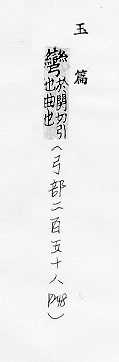 玉篇
彎於關切引也曲也(弓部二百五十八)